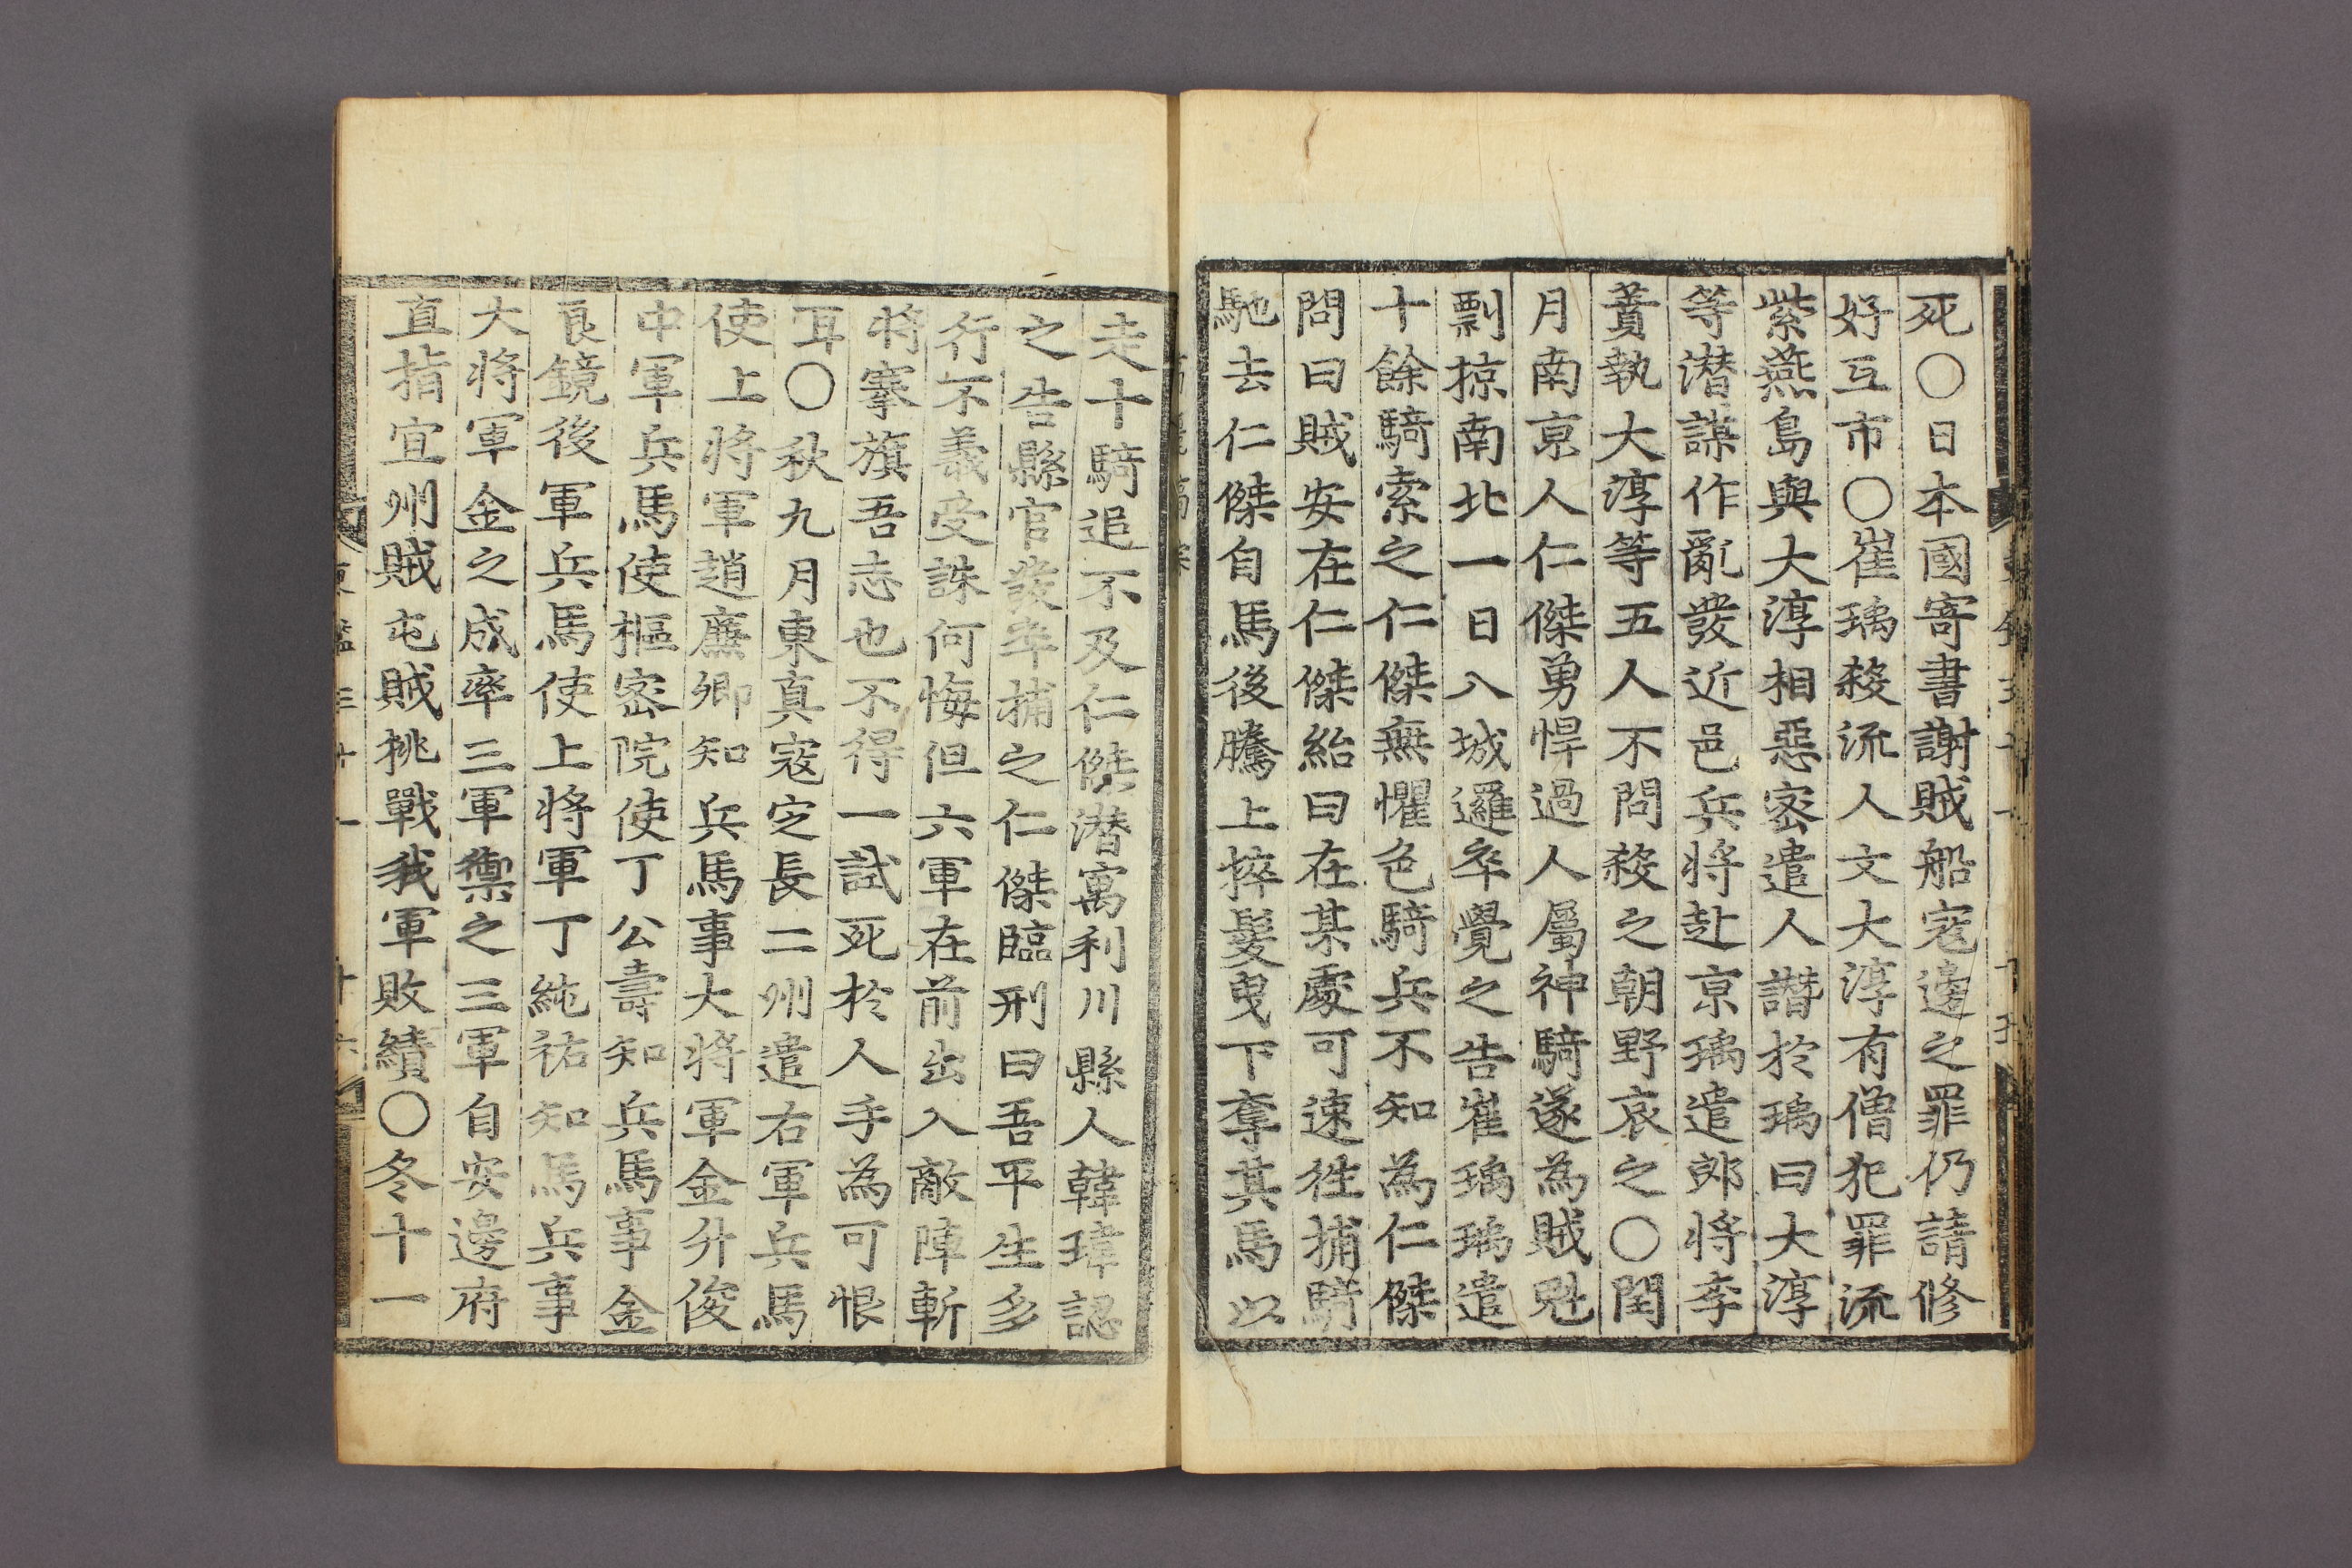 死○日本國寄書謝賊船寇邊之罪仍請修
好互市○崔瑀殺流人文大淳有僧犯罪流
紫燕島與大淳相惡密遣人譖於瑀曰大淳
等潛謀作亂發近邑兵將赴京瑀遣郎將李
蕡執大淳等五人不問殺之朝野哀之○閏
月南京人仁傑勇悍過人屬神騎遂為賊魁
剽掠南北一日入城邏卒覺之告崔瑀瑀遣
十餘騎索之仁傑無懼色騎兵不知為仁傑
問曰賊安在仁傑紿曰在某處可速徃捕騎
馳去仁傑自馬後騰上捽髮曳下奪其馬以
走十騎追不及仁傑潛寓利川縣人韓瑋認
之告縣官發卒捕之仁傑臨刑曰吾平生多
行不義受誅何悔但六軍在前出入敵陣斬
將搴旗吾志也不得一試死於人手為可恨
耳○秋九月東真寇定長二州遣右軍兵馬
使上將軍趙廉卿知兵馬事大將軍金升俊
中軍兵馬使樞密院使丁公壽知兵馬事金
良鏡後軍兵馬使上將軍丁純祐知馬兵事
大將軍金之成率三軍禦之三軍自安邊府
直指宜州賊屯賊挑戰我軍敗績○冬十一
東鑑三十一 十六